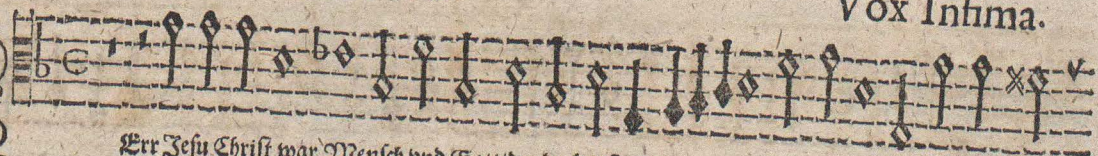 Vox Infima.
Err Jesu Christ war Mensch vnd